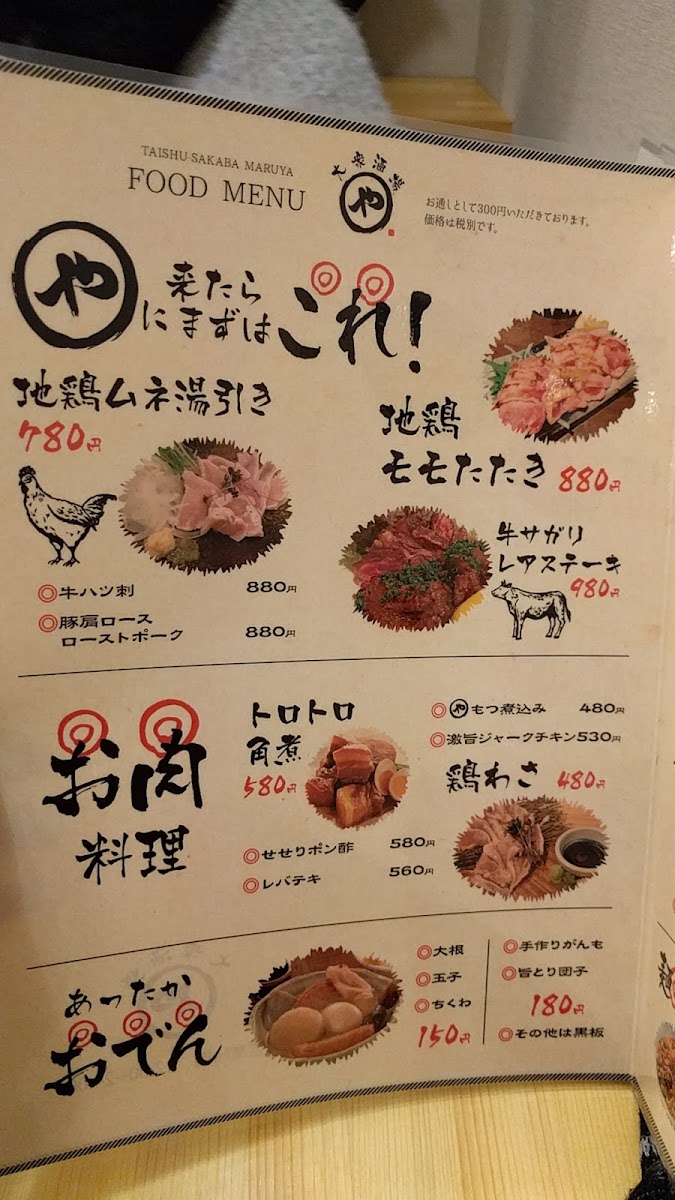 TAISHU SAKABA MARUYA
FOOD MENU
大衆酒場
や
お通しとして300円いただいております。
価格は税別です。
や
来たら
にまずは
これ!
地鶏ムネ湯引き
780円
地鶏
モモたたき 880円
牛サガリ
レアステーキ
980円
◎牛ハツ刺 880円
◎豚肩ロース
ローストポーク 880円
お肉
料理
トロトロ
角煮
580円
◎やもつ煮込み 480円
◎激旨ジャークチキン530円
鶏わさ 480円
◎せせりポン酢 580円
◎レバテキ 560円
あったか
おでん
◎大根
◎玉子
◎ちくわ
150円
◎手作りがんも
◎旨とり団子
180円
◎その他は黒板